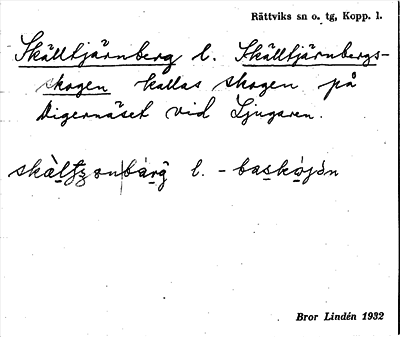 Rättviks sn o. tg, Kopp. l.
Skälltjärnberg l. Skälltjärnbergs-
skogen kallas skogen på
Digernäset vid Ljugaren.
l.
Bror Lindén 1932